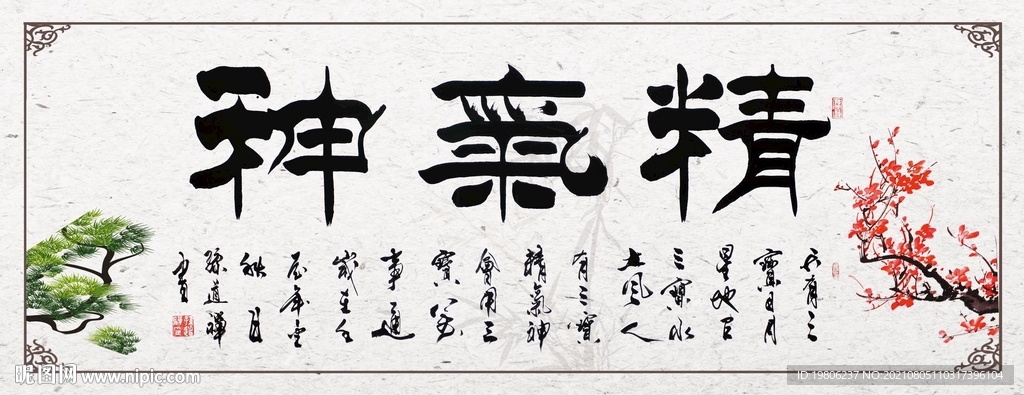 精氣神
天有三
寳日月
星地有
三寳水
火風人
有三寳
精氣神
會用三
寳萬
事通
歲在壬
辰年金
秋月
孫道禪
書
昵图网 www.nipic.com
ID:19806237 NO:20210805110317396104